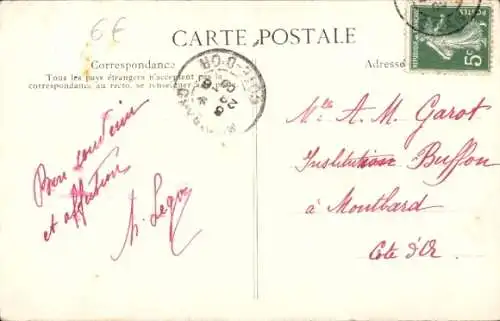 6€
CARTE POSTALE
Correspondance
Adresse
Tous les pays étrangers n'acceptent pas la
correspondance au recto, se renseigner à la
5c
CÔTE-D'OR
Bon souvenir
et affection
Mlle A. M. Garot
Institution Buffon
à Montbard
Côte d'Or